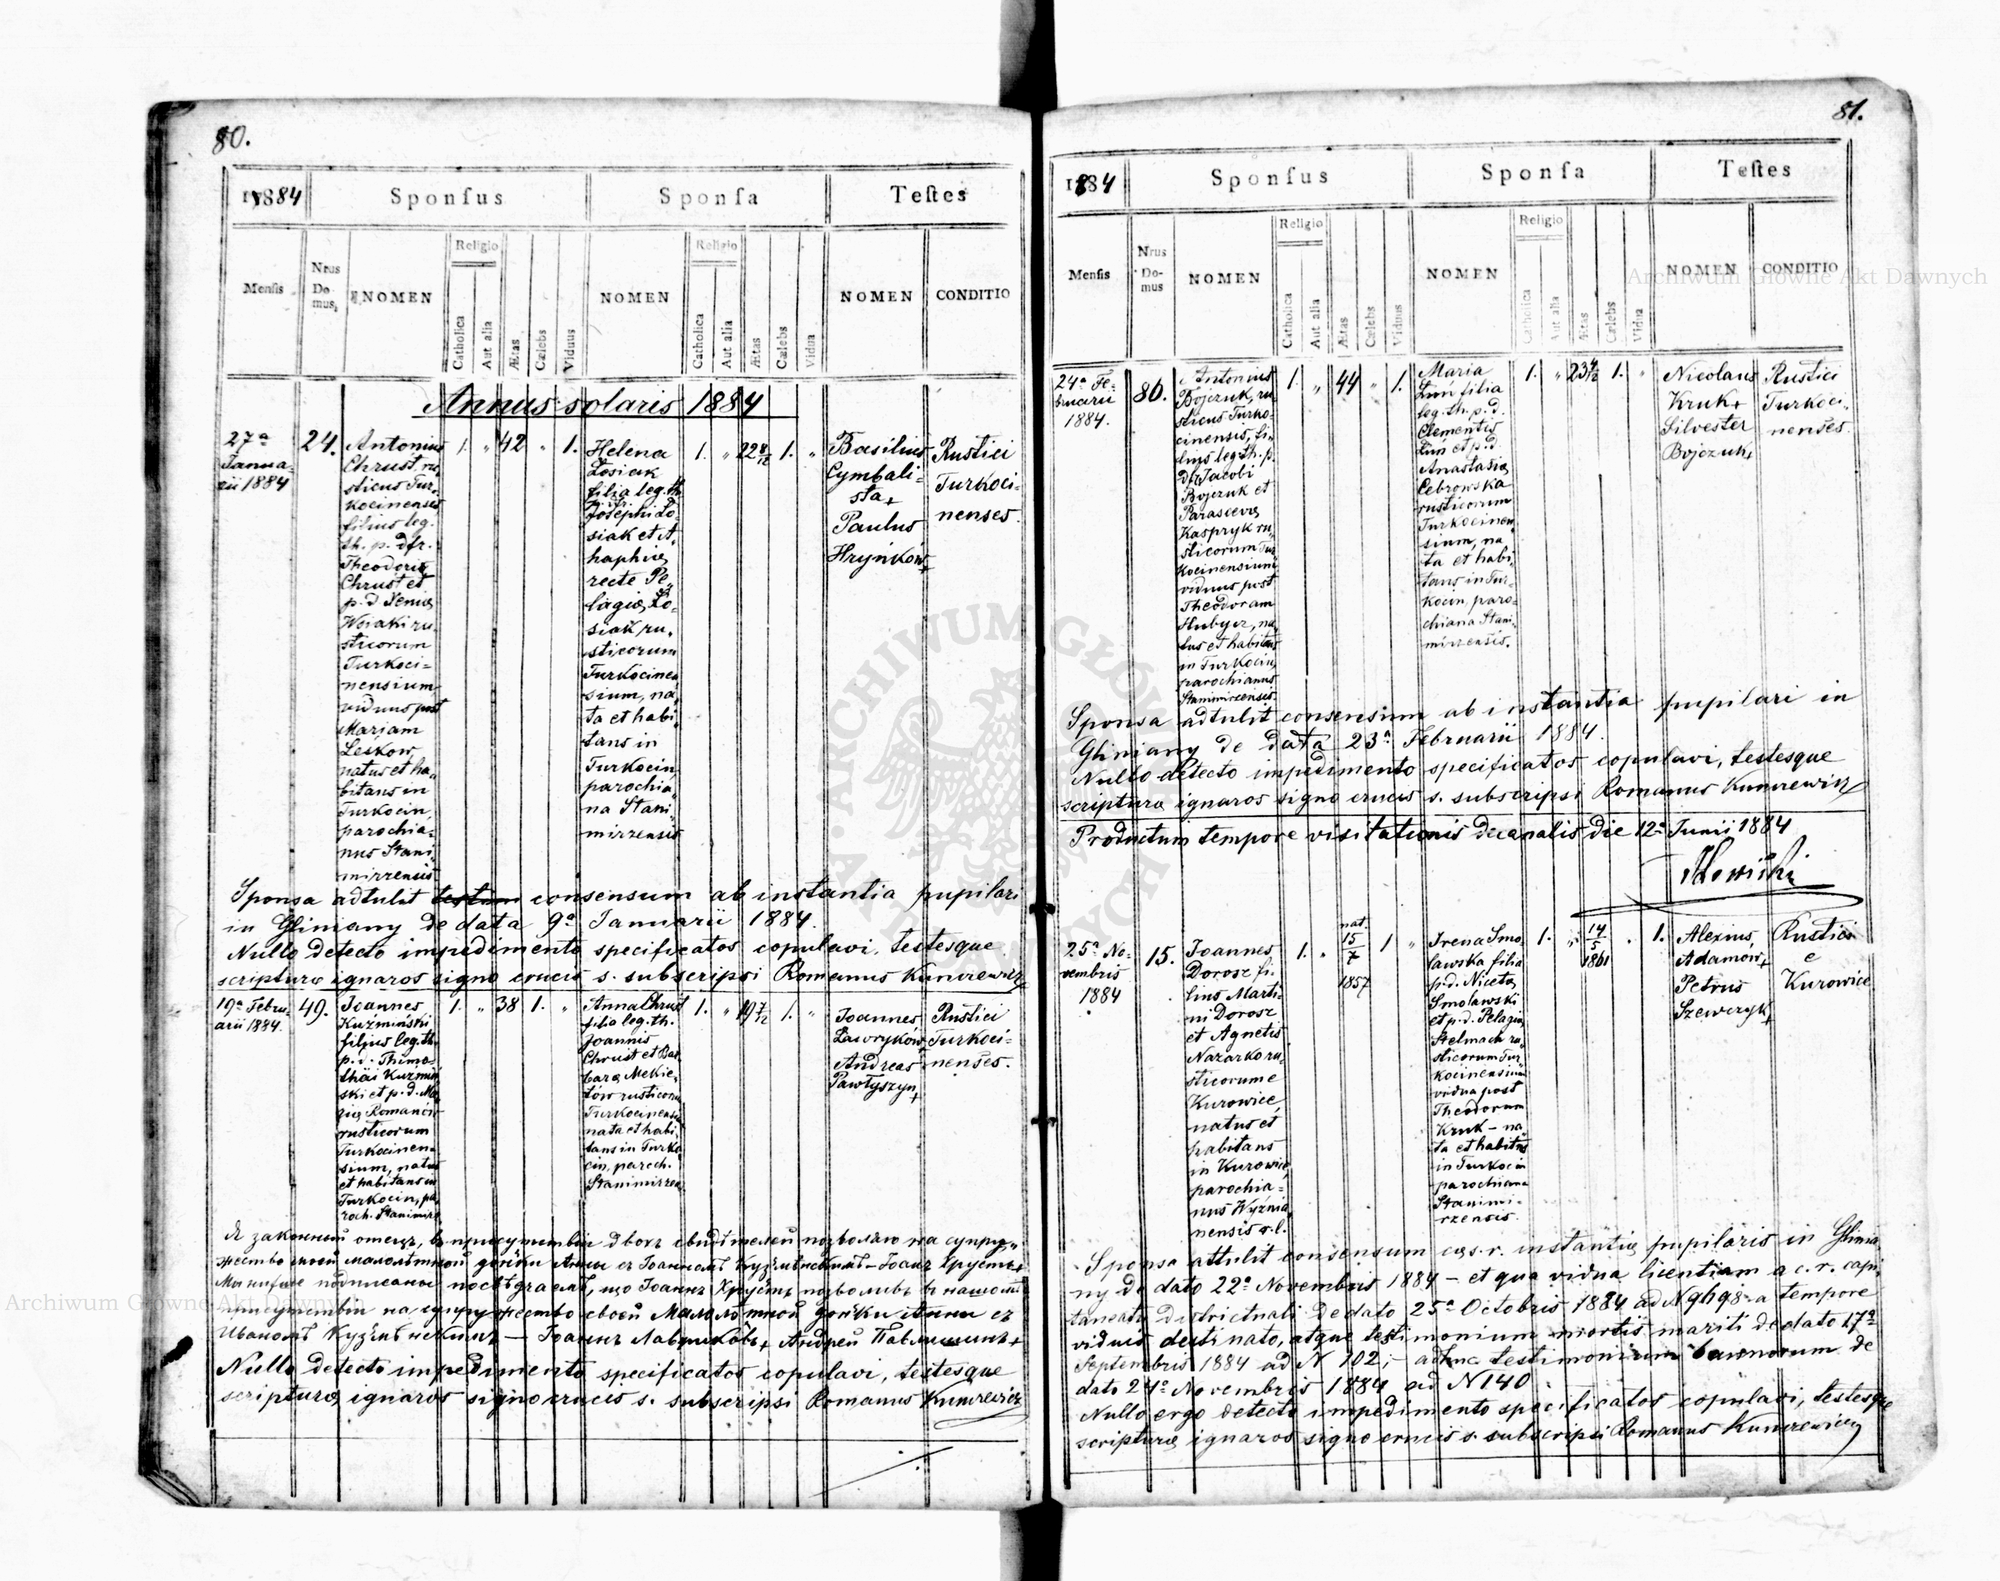 80.
1884
Sponsus
Sponsa
Testes
Mensis
Nrus Domus
NOMEN
Religio
Catholica
Aut alia
Ætas
Cœlebs
Viduus
NOMEN
Religio
Catholica
Aut alia
Ætas
Cœlebs
Vidua
NOMEN
CONDITIO
Annus solaris 1884
27ª
Janua-
rii 1884
24.
Antonius
Chrust ru-
sticus Tur-
kocinensis
filius leg.
th. p. dfr.
Theodori
Chrust et
p. d. Xeniæ
Wojaki ru-
sticorum
Turkoci-
nensium
viduus post
Mariam
Leskow,
natus et ha-
bitans in
Turkocin,
parochia-
nus Stani-
mirzensis
1.
"
42
"
1.
Helena
Łosiak
filia leg. th.
Josephi Ło-
siak et A-
haphiæ
recte Pe-
lagiæ Ło-
siak ru-
sticorum
Turkocinen-
sium, na-
ta et habi-
tans in
Turkocin,
parochia-
na Stani-
mirzensis
1.
"
22 8/12
1.
"
Basilius
Cymbali-
sta +
Paulus
Hryńków +
Rustici
Turkoci-
nenses.
Sponsa adtulit testim consensum ab instantia pupilari
in Gliniany de data 9ª Januarii 1884.
Nullo detecto impedimento specificatos copulavi, testesque
scripturæ ignaros signo crucis s. subscripsi Romanus Kuncewicz
19ª Febru-
arii 1884.
49.
Joannes
Kuźmiński
filius leg. th.
p. d. Thimo-
thäi Kuźmiń-
ski et p. d. Ma-
riæ Romanów
rusticorum
Turkocinen-
sium, natus
et habitans in
Turkocin, pa-
roch. Stanimirz.
1.
"
38
1.
"
Anna Chrust
filia leg. th.
Joannis
Chrust et Bar-
baræ Mekie-
tów rusticorum
Turkocinensium
nata et habi-
tans in Turko-
cin, paroch.
Stanimirzen.
1.
"
19 7/12
1.
"
Joannes
Ławryków +
Andreas
Pawłyszyn +
Rustici
Turkoci-
nenses.
Я законный отецъ, въ присутствіи двохъ свидѣтелей позволяю на супру-
жество своей малолѣтной дочки Анны съ Іоанномъ Кузьминскимъ – Іоанъ Хрустъ +
присутствіи на супружество своей малолѣтной дочки Анны съ
Иваномъ Кузьминскимъ — Іоаннъ Лаврыковъ + Андрей Павлишинъ +
Nullo detecto impedimento specificatos copulavi, testesque
scripturæ ignaros signo crucis s. subscripsi Romanus Kuncewicz
81.
1884
Sponsus
Sponsa
Testes
Mensis
Nrus Domus
NOMEN
Religio
Catholica
Aut alia
Ætas
Cœlebs
Viduus
NOMEN
Religio
Catholica
Aut alia
Ætas
Cœlebs
Vidua
NOMEN
CONDITIO
24ª Fe-
bruarii
1884.
80.
Antonius
Bojczuk, ru-
sticus Turko-
cinensis, fi-
lius leg. th. p.
d. Jacobi
Bojczuk et
Parascevæ
Kaspryk ru-
sticorum Tur-
kocinensium
viduus post
Theodoram
Hubycz, na-
tus et habitans
in Turkocin,
parochianus
Stanimirzensis
1.
"
44
"
1.
Maria
Łuń filia
leg. th. p. d.
Clementis
Łuń et p. d.
Anastasiæ
Cebrowska
rusticorum
Turkocinen-
sium, na-
ta et habi-
tans in Tur-
kocin, paro-
chiana Stani-
mirzensis.
1.
"
23 4/12
1.
"
Nicolaus
Kruk +
Silvester
Bojczuk +
Rustici
Turkoci-
nenses.
Sponsa adtulit consensum ab instantia pupilari in
Gliniany de data 23ª Februarii 1884.
Nullo detecto impedimento specificatos copulavi, testesque
scripturæ ignaros signo crucis s. subscripsi Romanus Kuncewicz
Productum tempore visitationis decanalis die 12ª Junii 1884
25ª No-
vembris
1884
15.
Joannes
Dorosz fi-
lius Marti-
ni Dorosz
et Agnetis
Nazarko ru-
sticorum e
Kurowice,
natus et
habitans
in Kurowice,
parochia-
nus Wyźnia-
nensis r. l.
1.
"
nat.
15
7
1857
1
"
Irena Smo-
lawska filia
p. d. Nicetæ
Smolawski
et p. d. Pelagiæ
Stelmach ru-
sticorum Tur-
kocinensium
vidua post
Theodorum
Kruk – na-
ta et habitans
in Turkocin
parochiana
Stanimi-
rzensis.
1.
"
14
5
1861
.
1.
Alexius
Adamow +
Petrus
Szewczyk +
Rustici
e
Kurowice
Sponsa attulit consensum cæs. r. instantiæ pupilaris in Glinia-
ny de dato 22ª Novembris 1884 – et qua vidua licentiam a c. r. capi-
taneatu Districtuali de dato 25ª Octobris 1884 ad N 9498 a tempore
viduis destinato, atque testimonium mortis mariti de dato 17ª
Septembris 1884 ad N 102; – adhuc testimonium bannorum de
dato 24ª Novembris 1884 ad N 140.
Nullo ergo detecto impedimento specificatos copulavi, testesque
scripturæ ignaros signo crucis s. subscripsi Romanus Kuncewicz
Archiwum Główne Akt Dawnych
Archiwum Główne Akt Dawnych
ARCHIWUM GŁÓWNE AKT DAWNYCH